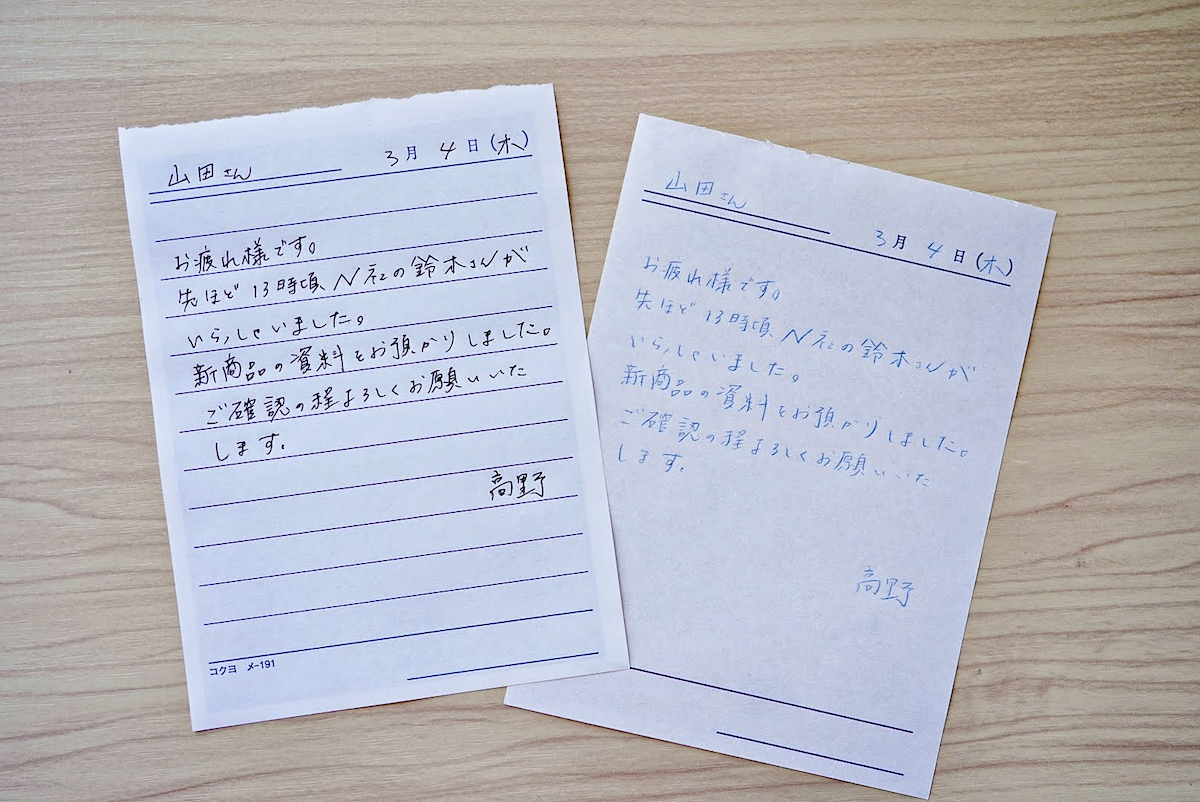 山田さん 3月 4日(木)
お疲れ様です。
先ほど 13時頃、N社の鈴木さんが
いらっしゃいました。
新商品の資料をお預かりしました。
ご確認の程よろしくお願いいた
します。
高野
コクヨ メ-191
山田さん 3月 4日(木)
お疲れ様です。
先ほど 13時頃、N社の鈴木さんが
いらっしゃいました。
新商品の資料をお預かりしました。
ご確認の程よろしくお願いいた
します。
高野